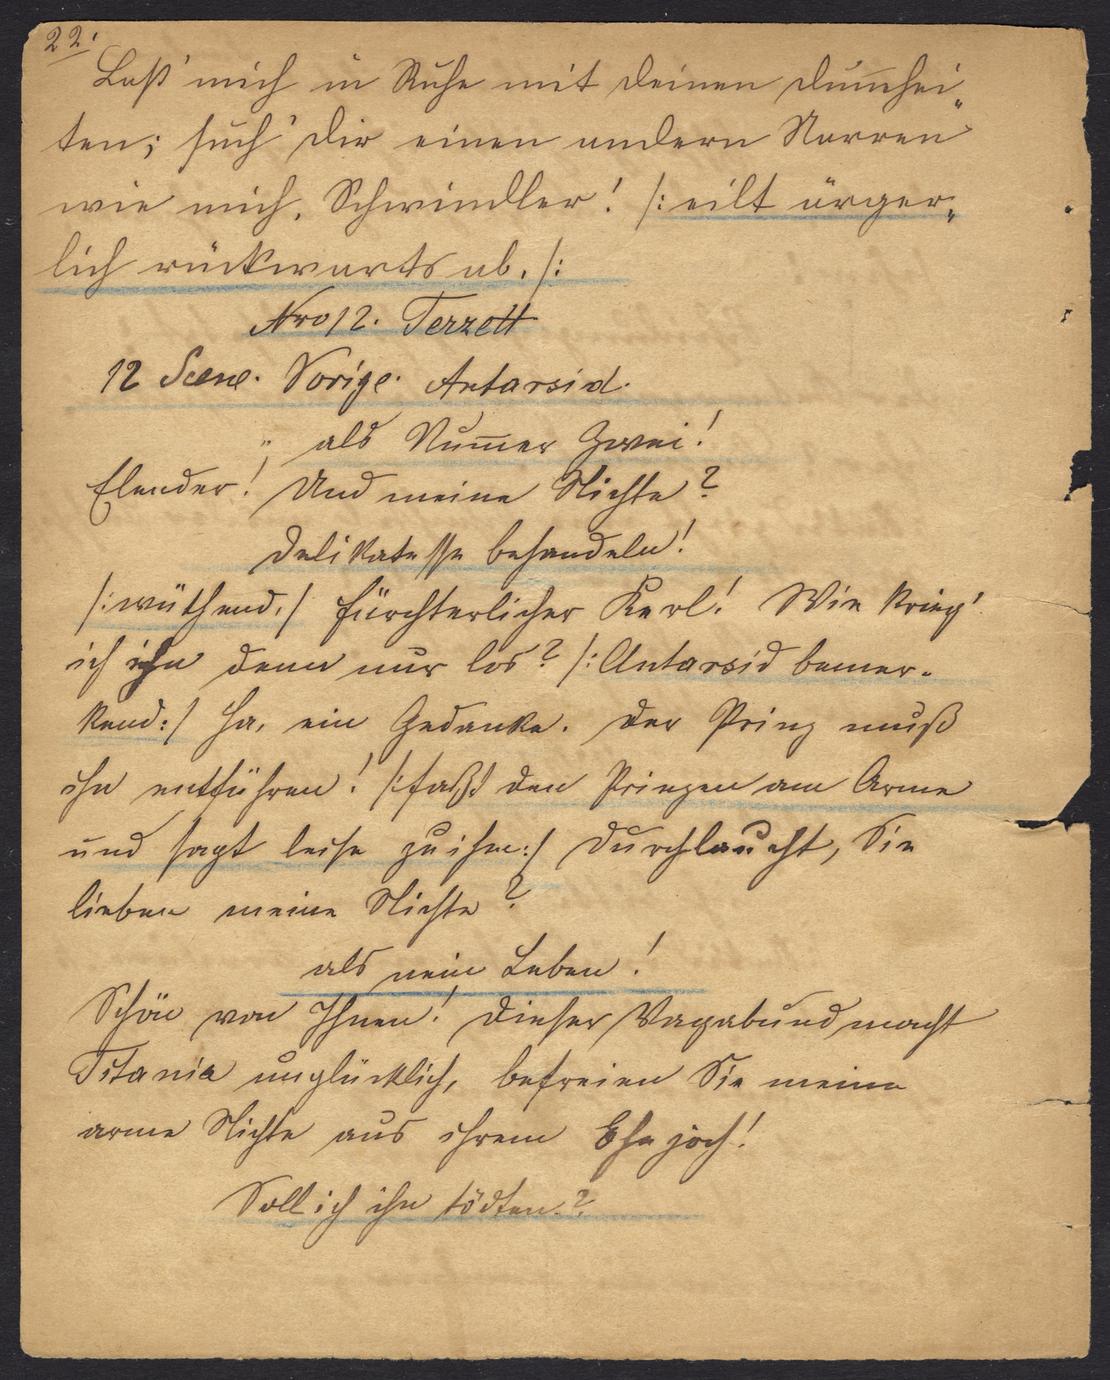 22.
Laß' mich in Ruhe mit deinen Dum̅hei„
ten; such' dir einen andern Narren
wie mich, Schwindler! /: eilt ärger„
lich rückwärts ab. /:
Nro 12. Terzett
12 Scene. Vorige. Antarsid.
„ als Num̅er Zwei!
Elender! Und meine Nichte?
Delikatesse behandeln!
/: wüthend. / Fürchterlicher Kerl! Wie krieg'
ich ihn denn nur los? /: Antarsid bemer-
kend: / Ha, ein Gedanke. Der Prinz muß
ihn entführen! /: faßt den Prinzen am Arme
und sagt leise zu ihm: / Durchlaucht, Sie
lieben meine Nichte?
als mein Leben!
Schön von Ihnen! Dieser Vagabund macht
Titania unglücklich, befreien Sie meine
arme Nichte aus ihrem Ehejoch!
Soll ich ihn tödten?